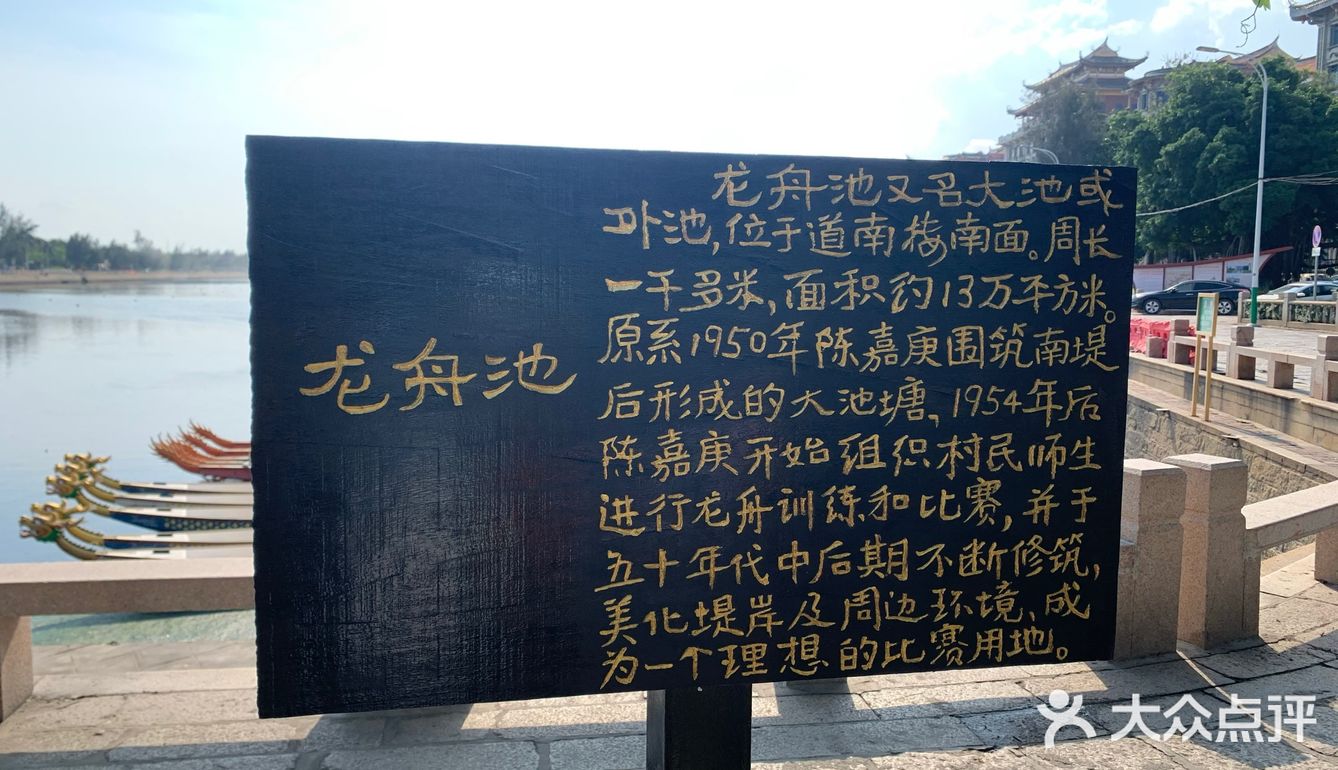 龙舟池
龙舟池又名大池或
外池,位于道南楼南面。周长
一千多米,面积约13万平方米。
原系1950年陈嘉庚围筑南堤
后形成的大池塘,1954年后
陈嘉庚开始组织村民师生
进行龙舟训练和比赛,并于
五十年代中后期不断修筑,
美化堤岸及周边环境、成
为一个理想的比赛用地。
大众点评